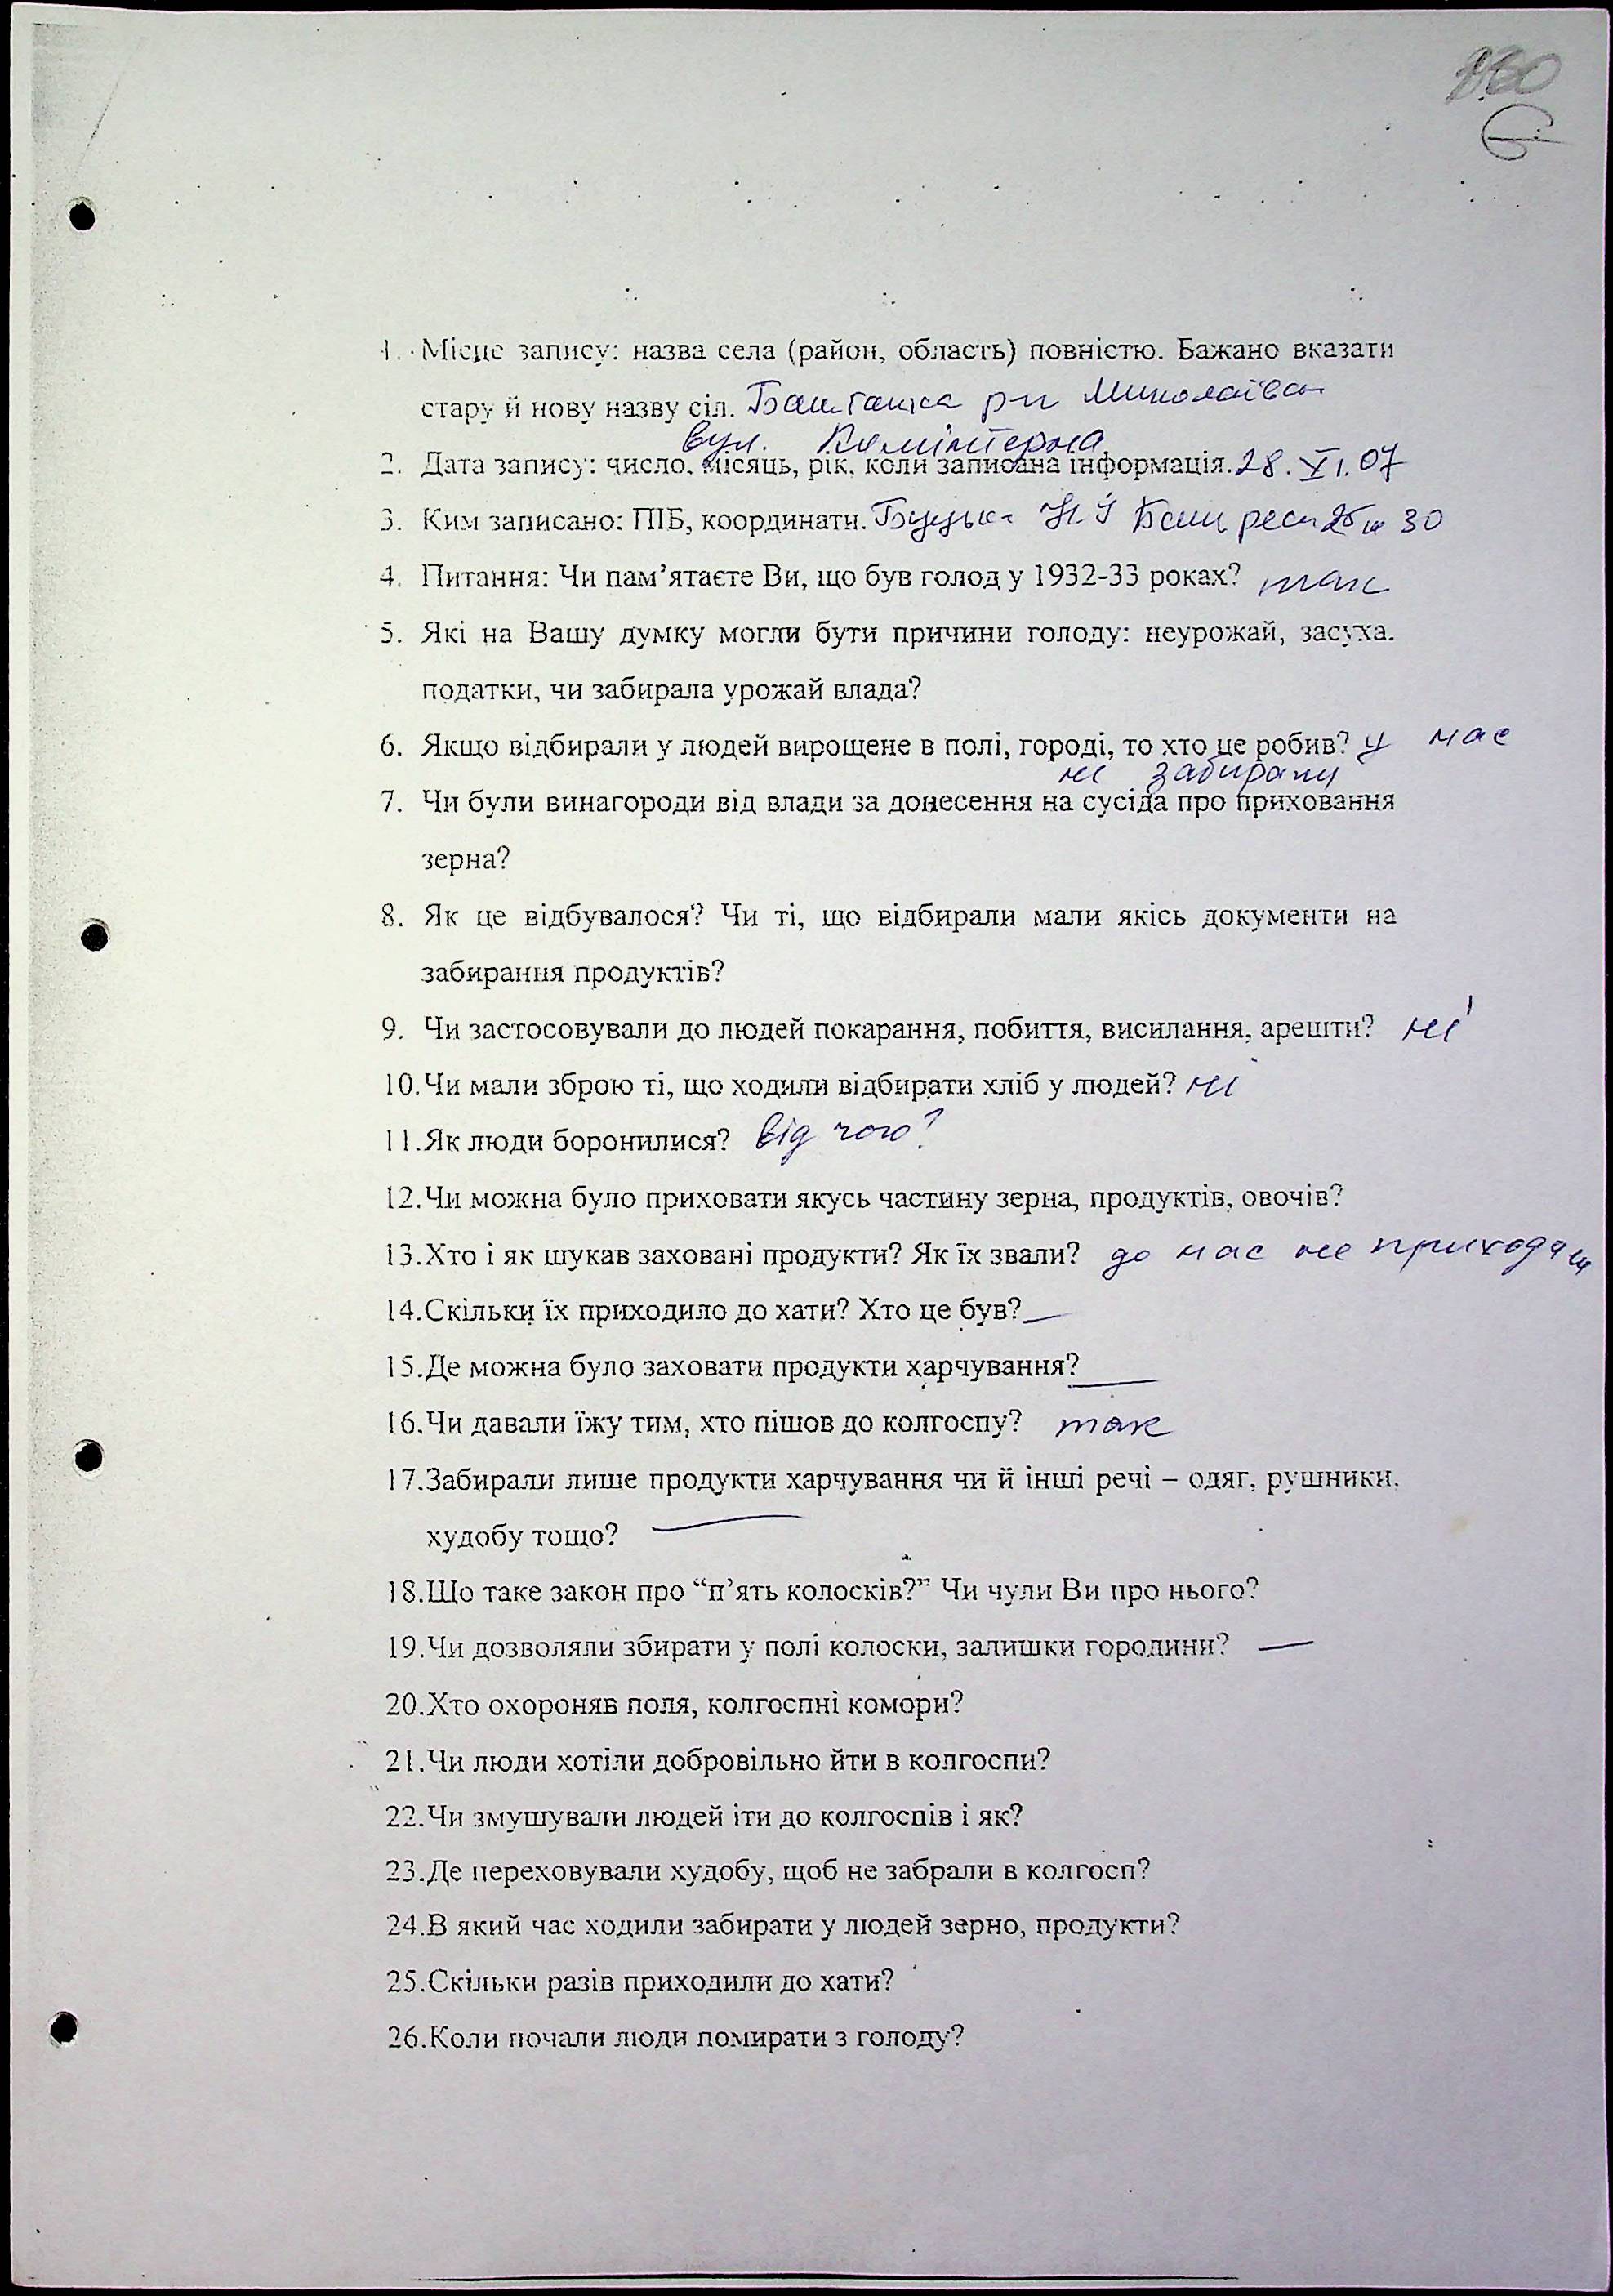 1. Місце запису: назва села (район, область) повністю. Бажано вказати
стару й нову назву сіл. Баштанка р-н Миколаївсь
вул. Комінтерна
2. Дата запису: число, місяць, рік, коли записана інформація. 28. XI. 07
3. Ким записано: ПІБ, координати. 30
4. Питання: Чи пам’ятаєте Ви, що був голод у 1932-33 роках? так
5. Які на Вашу думку могли бути причини голоду: неурожай, засуха.
податки, чи забирала урожай влада?
6. Якщо відбирали у людей вирощене в полі, городі, то хто це робив? у нас
не забирали
7. Чи були винагороди від влади за донесення на сусіда про приховання
зерна?
8. Як це відбувалося? Чи ті, що відбирали мали якісь документи на
забирання продуктів?
9. Чи застосовували до людей покарання, побиття, висилання, арешти? ні
10. Чи мали зброю ті, що ходили відбирати хліб у людей? ні
11. Як люди боронилися? від чого?
12. Чи можна було приховати якусь частину зерна, продуктів, овочів?
13. Хто і як шукав заховані продукти? Як їх звали? до нас не приходили
14. Скільки їх приходило до хати? Хто це був? —
15. Де можна було заховати продукти харчування? —
16. Чи давали їжу тим, хто пішов до колгоспу? так
17. Забирали лише продукти харчування чи й інші речі – одяг, рушники.
худобу тощо? —
18. Що таке закон про “п’ять колосків?” Чи чули Ви про нього?
19. Чи дозволяли збирати у полі колоски, залишки городини? —
20. Хто охороняв поля, колгоспні комори?
21. Чи люди хотіли добровільно йти в колгоспи?
22. Чи змушували людей іти до колгоспів і як?
23. Де переховували худобу, щоб не забрали в колгосп?
24. В який час ходили забирати у людей зерно, продукти?
25. Скільки разів приходили до хати?
26. Коли почали люди помирати з голоду?